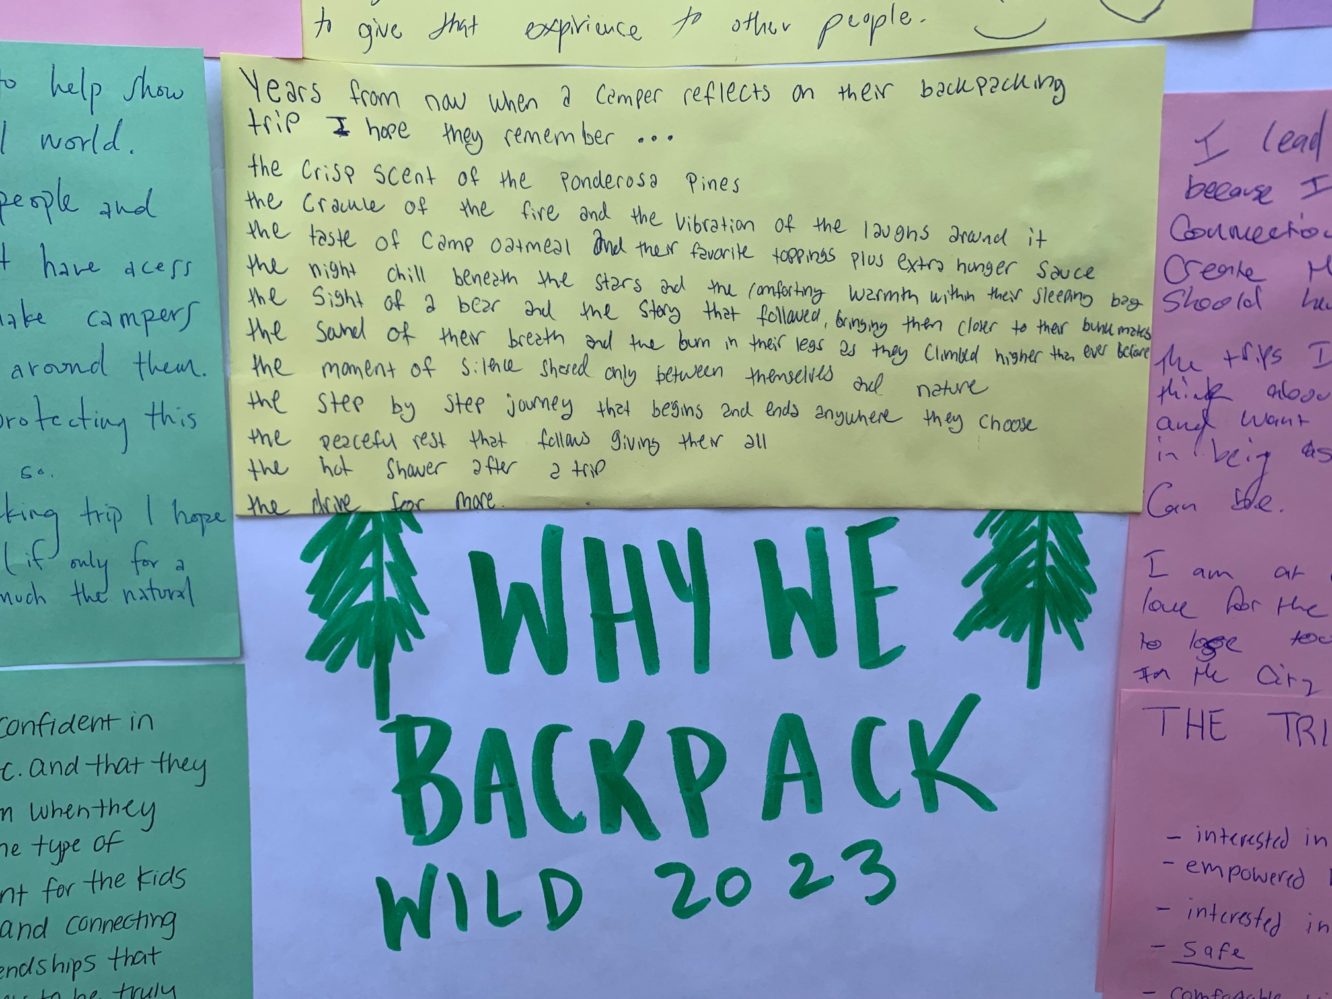 to give that expirience to other people.
Years from now when a camper reflects on their backpacking
trip I hope they remember ...
the crisp scent of the Ponderosa Pines
the cracule of the fire and the vibration of the laughs around it
the taste of camp oatmeal and their favorite toppings plus extra hunger sauce
the night chill beneath the stars and the comforting warmth within their sleeping bag
the sight of a bear and the story that followed, bringing them closer to their bunk mates
the sound of their breath and the burn in their legs as they climbed higher than ever before
the moment of silence shared only between themselves and nature
the step by step journey that begins and ends anywhere they choose
the peaceful rest that follows giving their all
the hot shower after a trip
the drive for more.
WHY WE
BACKPACK
WILD 2023
to help show
world.
people and
have acess
campers
around them.
protecting this
so.
king trip I hope
if only for a
much the natural
confident in
c. and that they
when they
type of
for the kids
and connecting
endships that
to be truly
I lead
because I
Connection
Create
should
the trips I
think
and want
in being as
Can be.
I am at
love for the
to lose
In the City
THE TRI
- interested in
- empowered
- interested in
- safe